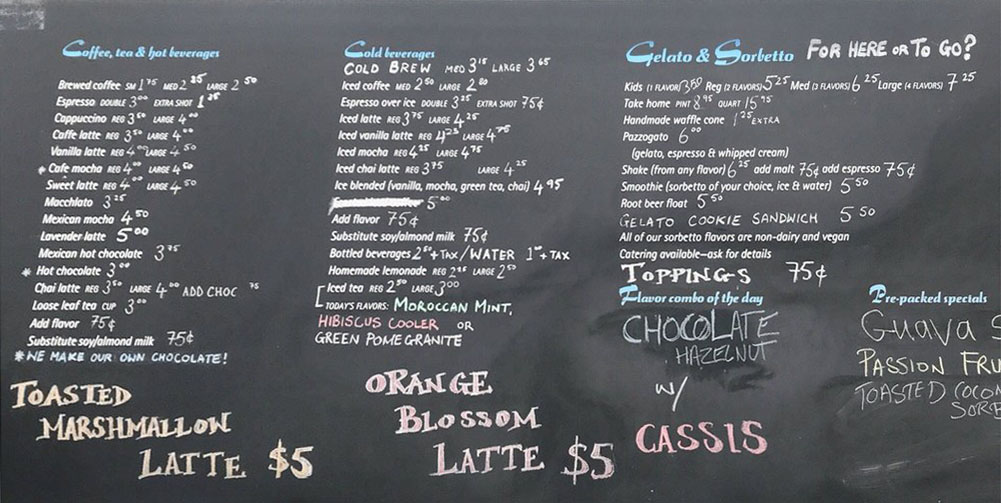 Coffee, tea & hot beverages
Brewed coffee SM 1 75 MED 2 25 LARGE 2 50
Espresso DOUBLE 3 00 EXTRA SHOT 1 25
Cappuccino REG 3 50 LARGE 4 00
Caffe latte REG 3 50 LARGE 4 00
Vanilla latte REG 4 00 LARGE 4 50
* Cafe mocha REG 4 00 LARGE 4 50
Sweet latte REG 4 00 LARGE 4 50
Macchiato 3 25
Mexican mocha 4 50
Lavender latte 5 00
Mexican hot chocolate 3 75
* Hot chocolate 3 00
Chai latte REG 3 50 LARGE 4 00 ADD CHOC 75
Loose leaf tea CUP 3 00
Add flavor 75¢
Substitute soy/almond milk 75¢
* WE MAKE OUR OWN CHOCOLATE!
TOASTED
MARSHMALLOW
LATTE $5
Cold beverages
COLD BREW MED 3 15 LARGE 3 65
Iced coffee MED 2 50 LARGE 2 80
Espresso over ice DOUBLE 3 25 EXTRA SHOT 75¢
Iced latte REG 3 75 LARGE 4 25
Iced vanilla latte REG 4 25 LARGE 4 75
Iced mocha REG 4 25 LARGE 4 75
Iced chai latte REG 3 75 LARGE 4 25
Ice blended (vanilla, mocha, green tea, chai) 4 95
5 00
Add flavor 75¢
Substitute soy/almond milk 75¢
Bottled beverages 2 50 + TAX / WATER 1 + TAX
Homemade lemonade REG 2 LARGE 2 50
Iced tea REG 2 50 LARGE 3 00
TODAY'S FLAVORS: MOROCCAN MINT,
HIBISCUS COOLER OR
GREEN POMEGRANITE
ORANGE
BLOSSOM
LATTE $5
Gelato & Sorbetto FOR HERE OR TO GO?
Kids (1 FLAVOR) 3 50 Reg (2 FLAVORS) 5 25 Med (3 FLAVORS) 6 25 Large (4 FLAVORS) 7 25
Take home PINT 8 95 QUART 15 95
Handmade waffle cone 1 25 EXTRA
Pazzogato 6 00
(gelato, espresso & whipped cream)
Shake (from any flavor) 6 25 add malt 75¢ add espresso 75¢
Smoothie (sorbetto of your choice, ice & water) 5 50
Root beer float 5 50
GELATO COOKIE SANDWICH 5 50
All of our sorbetto flavors are non-dairy and vegan
Catering available—ask for details
TOPPINGS 75¢
Flavor combo of the day
CHOCOLATE
HAZELNUT
W/
CASSIS
Pre-packed specials
GUAVA S
PASSION FRU
TOASTED COCON
SORB